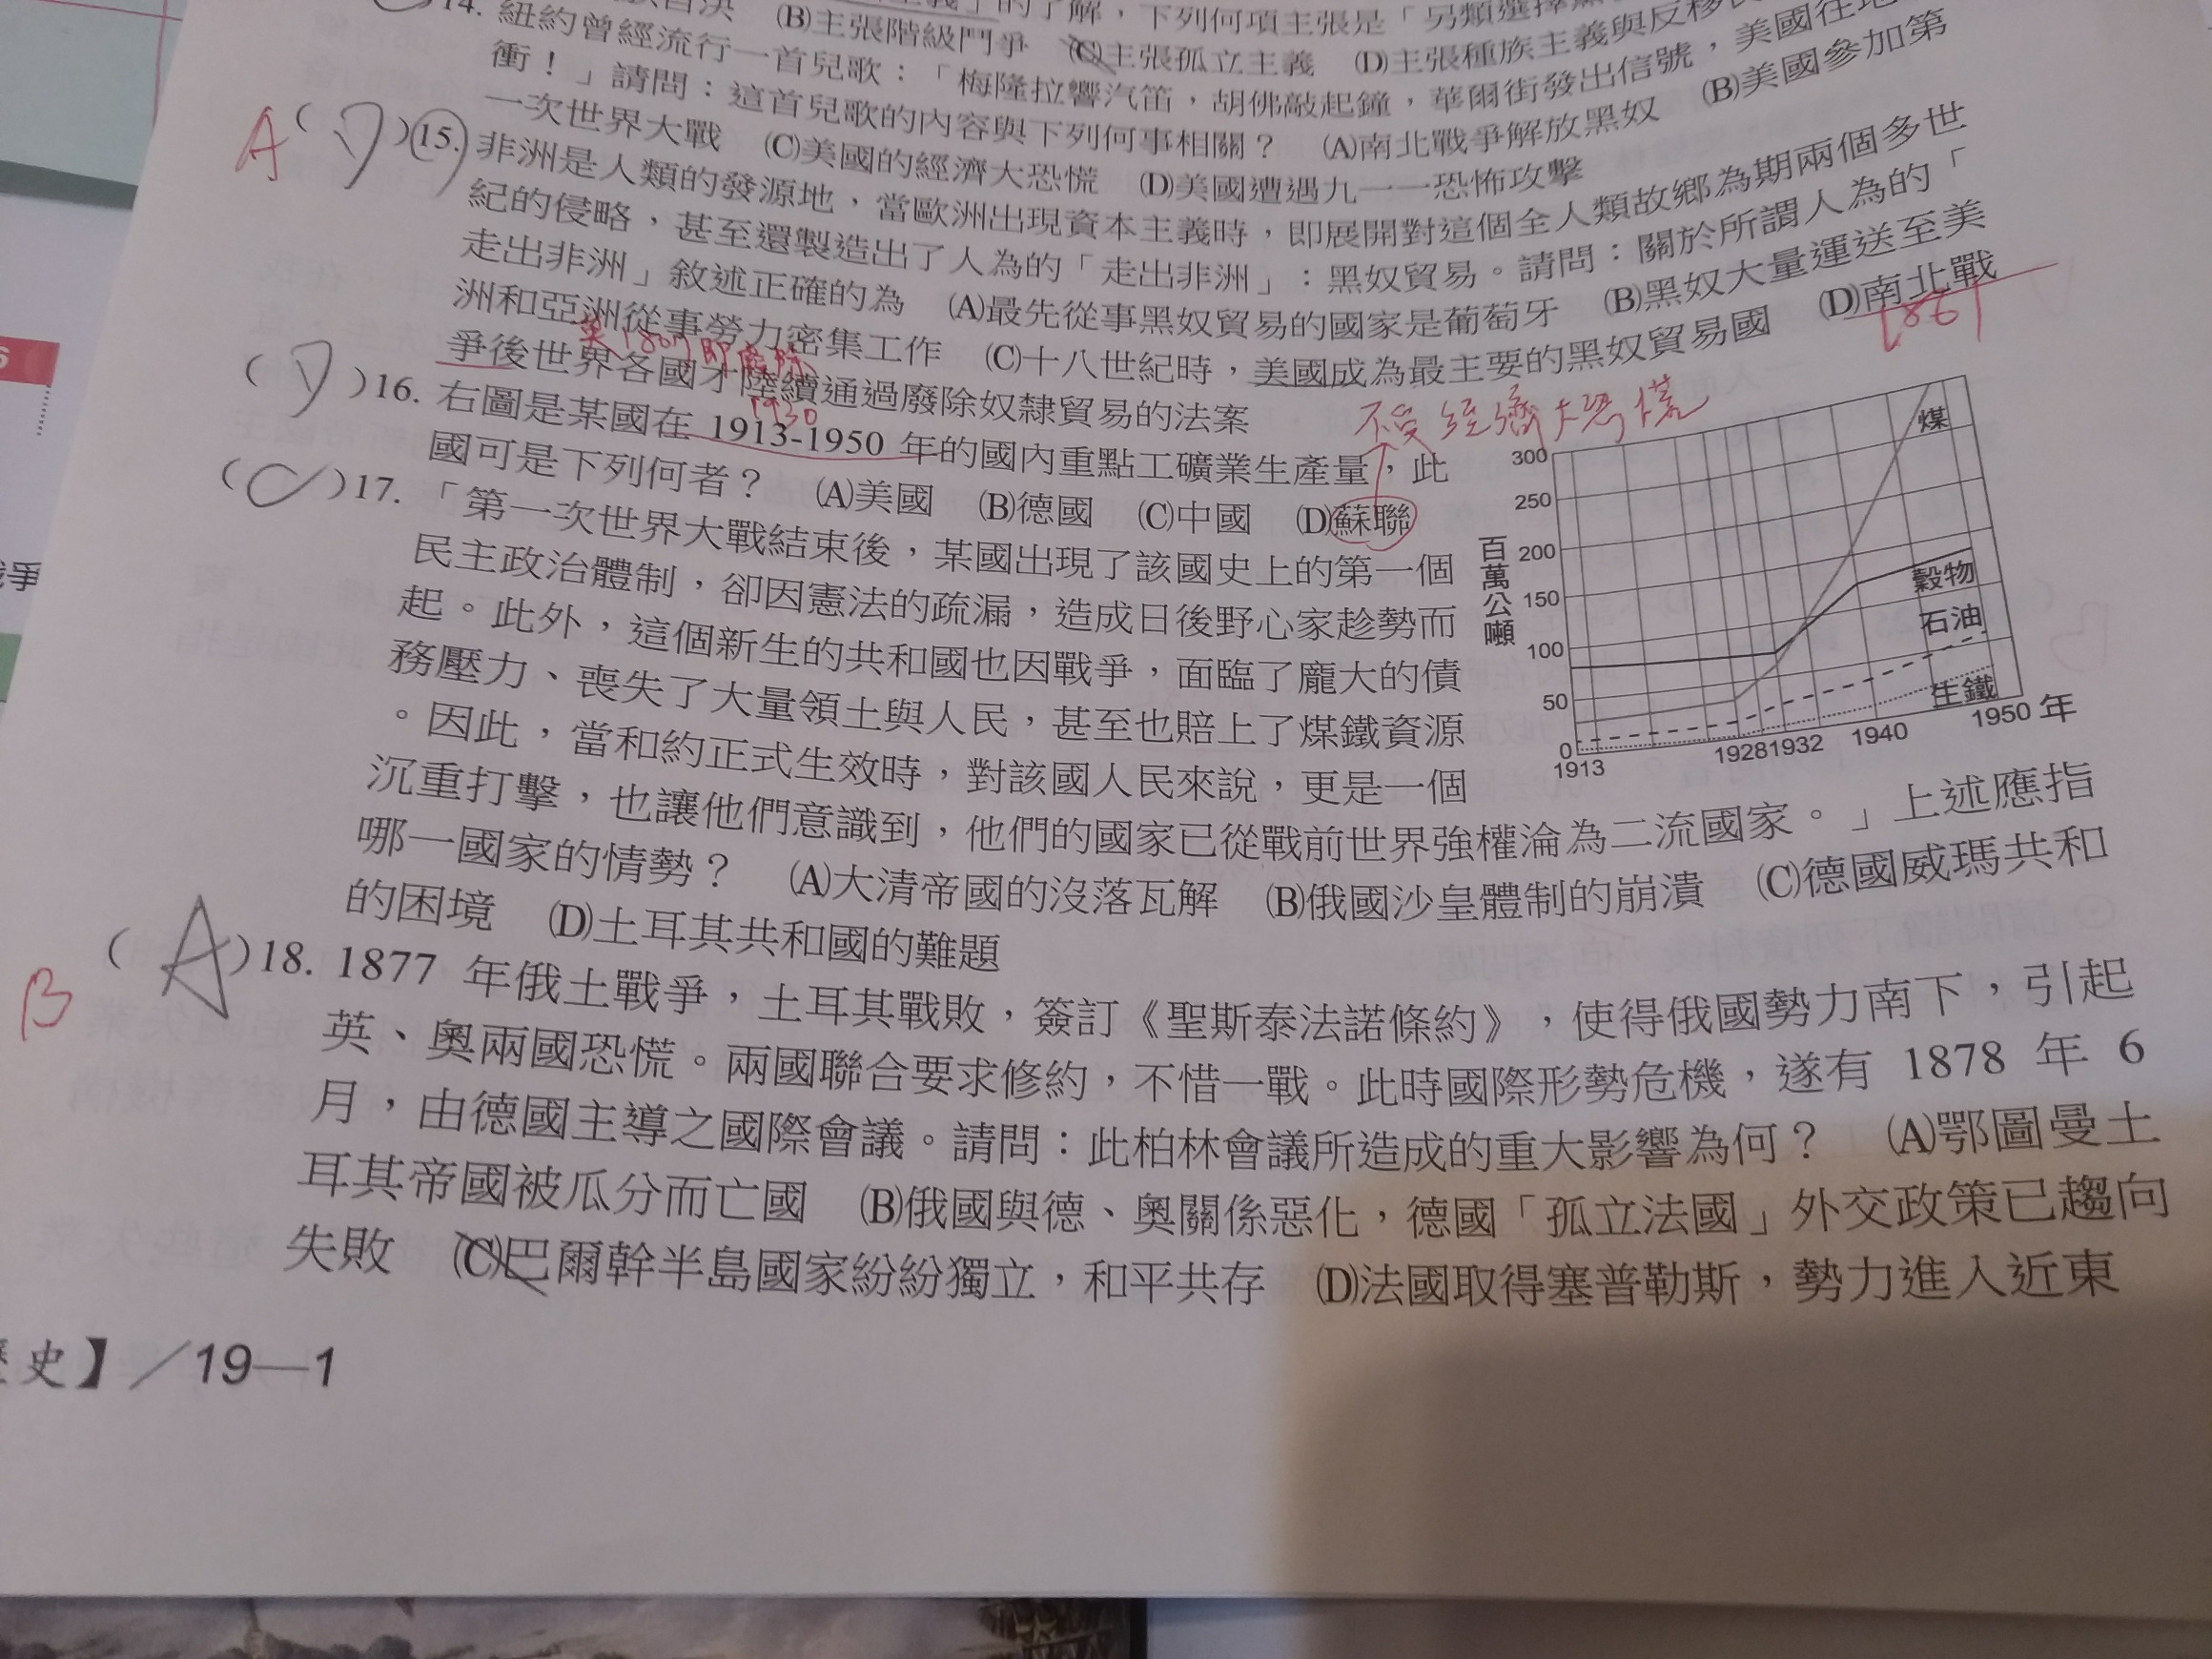 的了解，下列何項主張是「另類選擇黨
(B)主張階級鬥爭 (C)主張孤立主義 (D)主張種族主義與反移民
14. 紐約曾經流行一首兒歌：「梅隆拉響汽笛，胡佛敲起鐘，華爾街發出信號，美國往地
衝！」請問：這首兒歌的內容與下列何事相關？ (A)南北戰爭解放黑奴 (B)美國參加第
一次世界大戰 (C)美國的經濟大恐慌 (D)美國遭遇九一一恐怖攻擊
A (D)15. 非洲是人類的發源地，當歐洲出現資本主義時，即展開對這個全人類故鄉為期兩個多世
紀的侵略，甚至還製造出了人為的「走出非洲」：黑奴貿易。請問：關於所謂人為的「
走出非洲」敘述正確的為 (A)最先從事黑奴貿易的國家是葡萄牙 (B)黑奴大量運送至美
洲和亞洲從事勞力密集工作 (C)十八世紀時，美國成為最主要的黑奴貿易國 (D)南北戰
1861
英1807即廢除
爭後世界各國才陸續通過廢除奴隸貿易的法案
1930
不受經濟大恐慌
(D)16. 右圖是某國在 1913-1950 年的國內重點工礦業生產量，此
國可是下列何者？ (A)美國 (B)德國 (C)中國 (D)蘇聯
(C)17. 「第一次世界大戰結束後，某國出現了該國史上的第一個
民主政治體制，卻因憲法的疏漏，造成日後野心家趁勢而
起。此外，這個新生的共和國也因戰爭，面臨了龐大的債
務壓力、喪失了大量領土與人民，甚至也賠上了煤鐵資源
。因此，當和約正式生效時，對該國人民來說，更是一個
沉重打擊，也讓他們意識到，他們的國家已從戰前世界強權淪為二流國家。」上述應指
哪一國家的情勢？ (A)大清帝國的沒落瓦解 (B)俄國沙皇體制的崩潰 (C)德國威瑪共和
的困境 (D)土耳其共和國的難題
百萬公噸
300
250
200
150
100
50
0
煤
穀物
石油
生鐵
1913 1928 1932 1940 1950 年
B (A)18. 1877 年俄土戰爭，土耳其戰敗，簽訂《聖斯泰法諾條約》，使得俄國勢力南下，引起
英、奧兩國恐慌。兩國聯合要求修約，不惜一戰。此時國際形勢危機，遂有 1878 年 6
月，由德國主導之國際會議。請問：此柏林會議所造成的重大影響為何？ (A)鄂圖曼土
耳其帝國被瓜分而亡國 (B)俄國與德、奧關係惡化，德國「孤立法國」外交政策已趨向
失敗 (C)巴爾幹半島國家紛紛獨立，和平共存 (D)法國取得塞普勒斯，勢力進入近東
史】／19—1